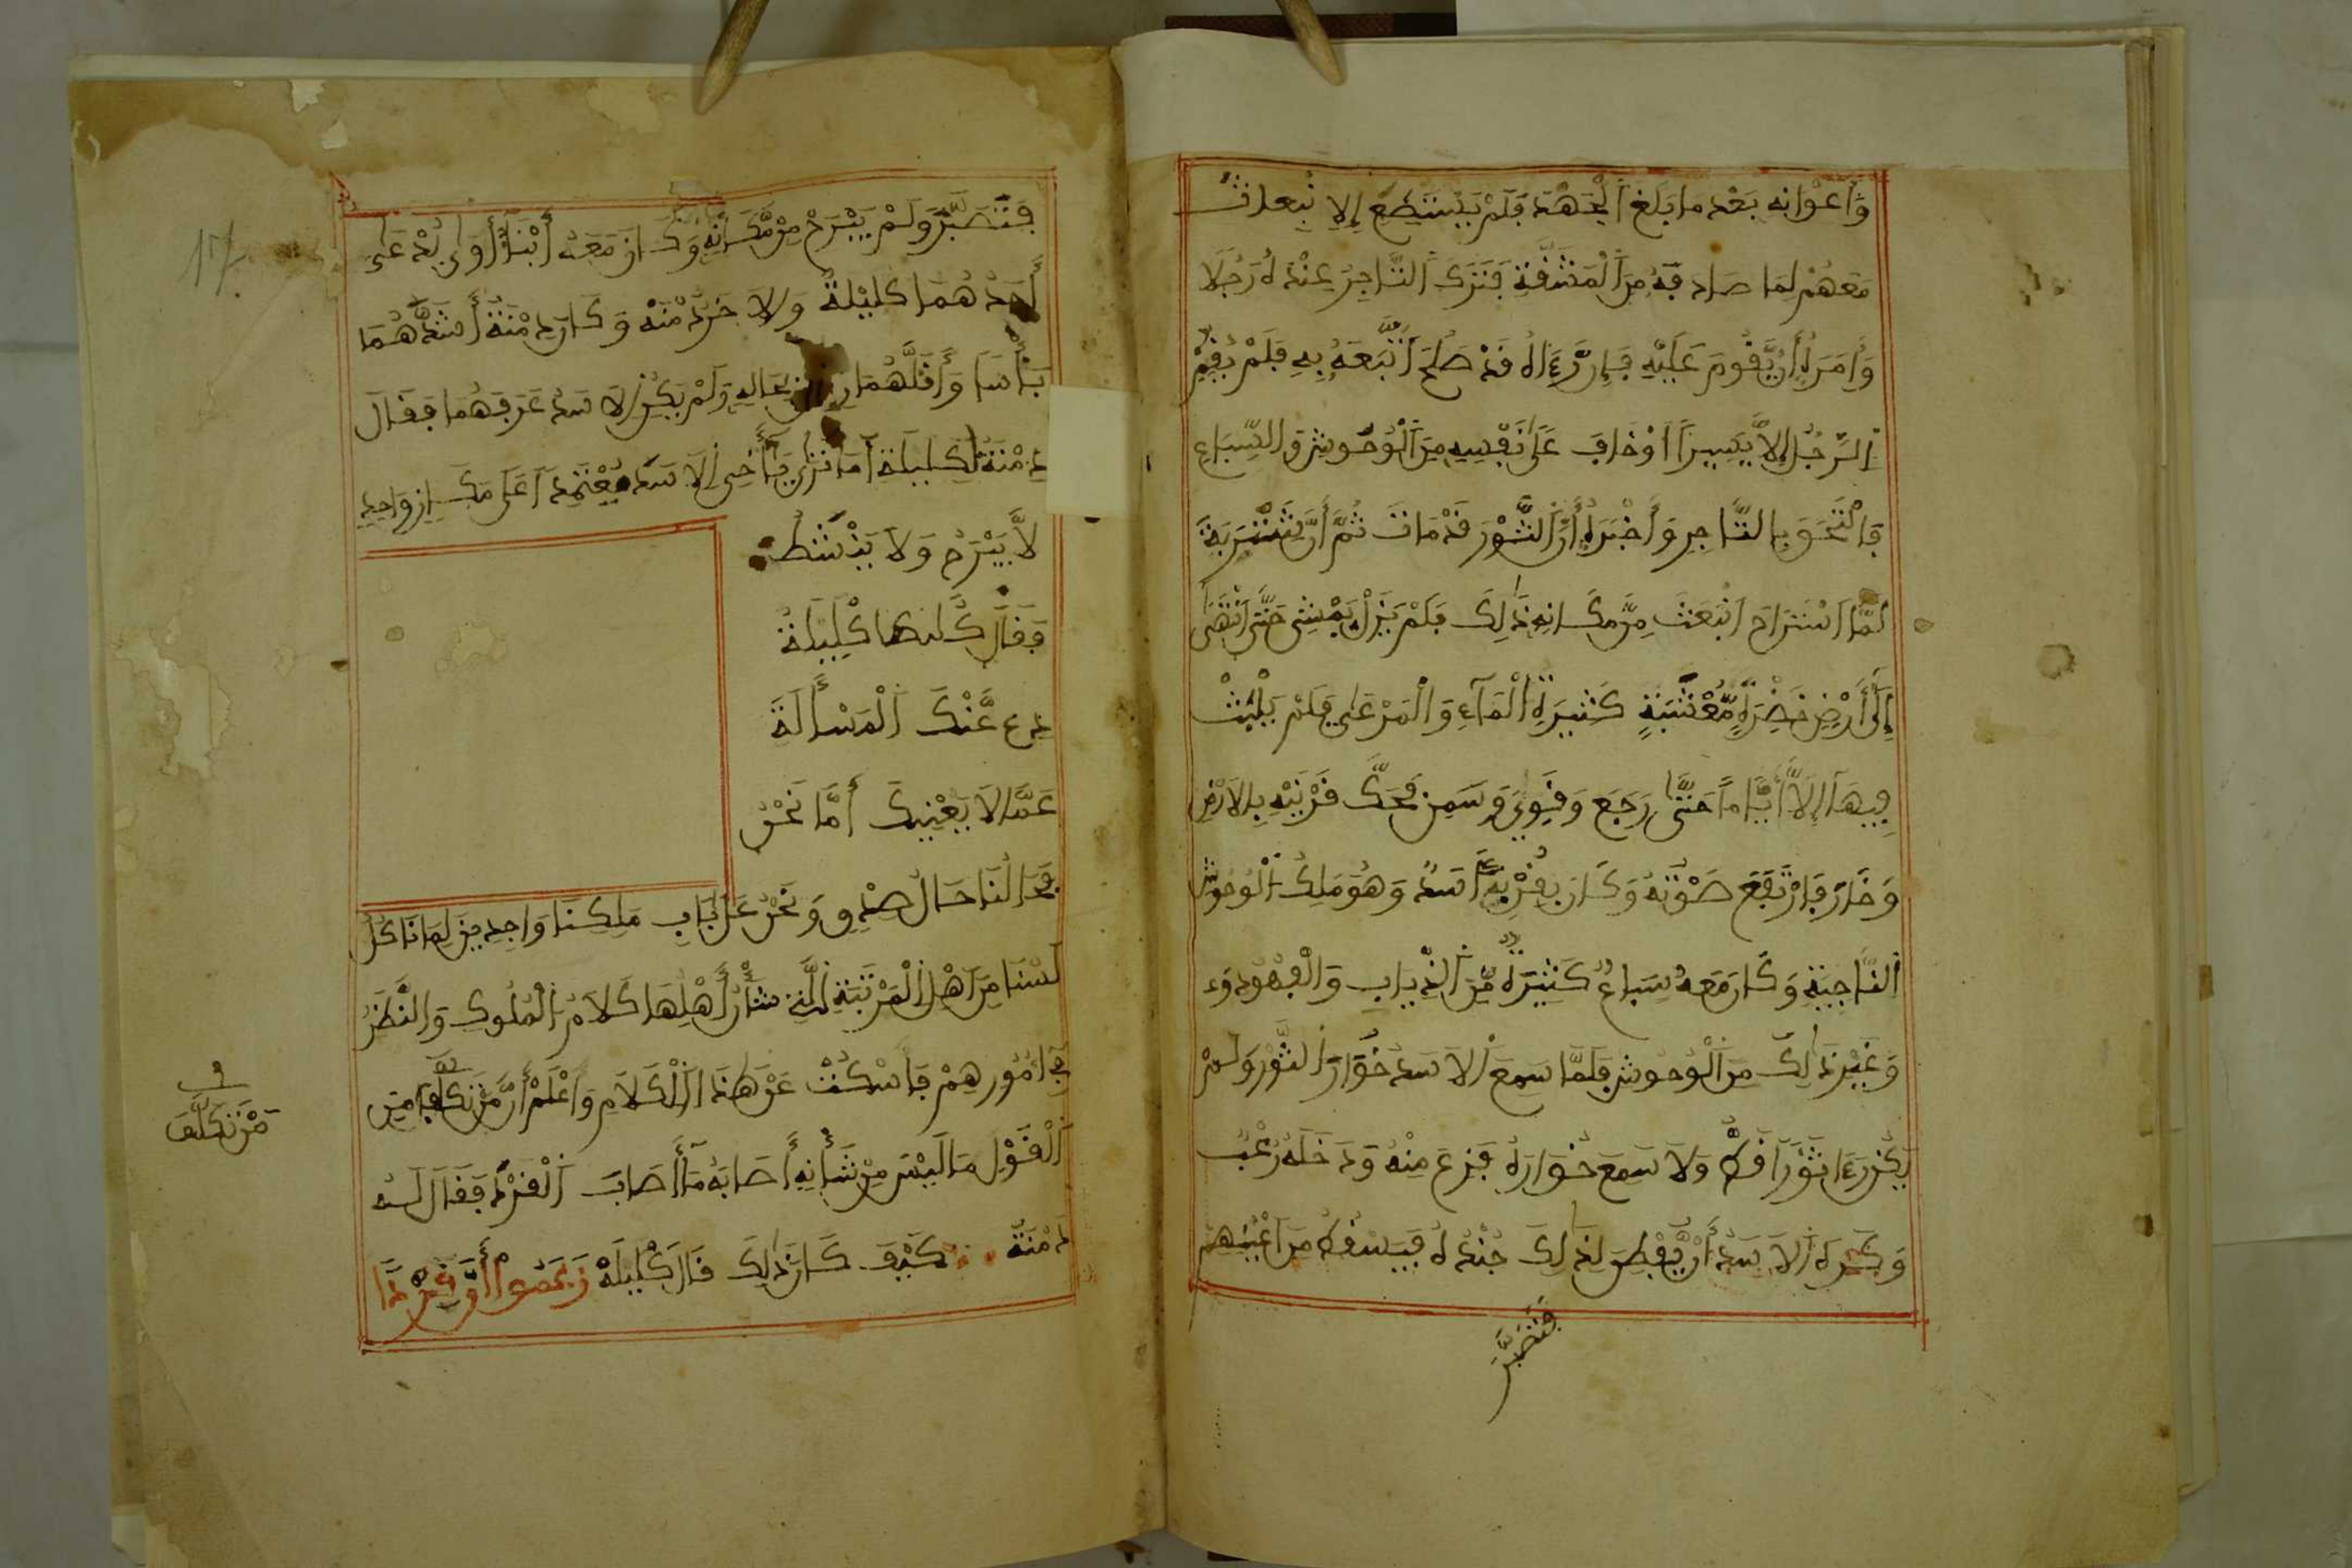 وَأَعْوَانِهِ بَعْدَ مَا بَلَغَ الْجَهْدَ فَلَمْ يَسْتَطِعْ
مَعَهُمْ لِمَا صَادَفَهُ مِنَ الْمَشَقَّةِ فَتَرَكَ التَّاجِرُ عِنْدَهُ رَجُلًا
وَأَمَرَهُ أَنْ يَقُومَ عَلَيْهِ فَإِنْ رَءَاهُ قَدْ صَلُحَ اتَّبَعَهُ بِهِ فَلَمْ يُقِمْ
الرَّجُلُ إِلَّا يَسِيرًا أَوْ خَافَ عَلَى نَفْسِهِ مِنَ الْوُحُوشِ وَالسِّبَاعِ
فَالْتَحَقَ بِالتَّاجِرِ وَأَخْبَرَهُ أَنَّ الثَّوْرَ قَدْ مَاتَ ثُمَّ أَنَّ شَنْتَرَبَةَ
لَمَّا اسْتَرَاحَ انْبَعَثَ مِنْ مَكَانِهِ ذَلِكَ فَلَمْ يَزَلْ يَمْشِي حَتَّى انْتَهَى
إِلَى أَرْضٍ خَضِرَةٍ مُعْشِبَةٍ كَثِيرَةِ الْمَاءِ وَالْمَرْعَى فَلَمْ يَلْبَثْ
فِيهَا إِلَّا أَيَّامًا حَتَّى رَجَعَ وَقَوِيَ وَسَمِنَ فَحَكَّ قَرْنَيْهِ بِالْأَرْضِ
وَخَارَ فَارْتَفَعَ صَوْتُهُ وَكَانَ بِقُرْبِهِ أَسَدٌ وَهُوَ مَلِكُ الْوُحُوشِ
النَّاحِيَةِ وَكَانَ مَعَهُ سِبَاعٌ كَثِيرَةٌ مِنَ الذِّيَابِ وَالْفُهُودِ
وَغَيْرِ ذَلِكَ مِنَ الْوُحُوشِ فَلَمَّا سَمِعَ الْأَسَدُ خُوَارَ الثَّوْرِ وَلَمْ
يَكُنْ رَءَا ثَوْرًا قَطُّ وَلَا سَمِعَ خُوَارَهُ فَزِعَ مِنْهُ وَدَخَلَهُ رُعْبٌ
وَكَرِهَ الْأَسَدُ أَنْ يَفْطِنَ لِذَلِكَ جُنْدُهُ فَيَسْقُطَ مِنْ أَعْيُنِهِمْ
فَتَصَبَّرَ
فَتَصَبَّرَ وَلَمْ يَبْرَحْ مِنْ مَكَانِهِ وَكَانَ مَعَهُ أَبْنَاءُ
أَحَدُهُمَا كَلِيلَةٌ وَلَاخَرُ دِمْنَةٌ وَكَانَ دِمْنَةٌ أَشَدَّهُمَا
بَأْسًا وَأَقَلَّهُمَا وَلَمْ يَكُنِ الْأَسَدُ عَرَفَهُمَا فَقَالَ
دِمْنَةُ لِكَلِيلَةَ أَمَا تَرَى يَا أَخِي الْأَسَدَ مُعْتَمِدًا عَلَى مَكَانٍ وَاحِدٍ
لَا يَبْرَحُ وَلَا يَنْشَطُ
فَقَالَ كَلِيلَةُ
دَعْ عَنْكَ الْمَسْأَلَةَ
عَمَّا لَا يَعْنِيكَ أَمَّا نَحْنُ
فَحَالُنَا حَالُ صِدْقٍ وَنَحْنُ عَلَى بَابِ مَلِكِنَا وَاجِدِينَ لِمَا نَاكُلُ
لَسْنَا مِنْ أَهْلِ الْمَرْتَبَةِ الَّتِي شَأْنُ أَهْلِهَا كَلَامُ الْمُلُوكِ وَالنَّظَرُ
فِي أُمُورِهِمْ فَاسْكُتْ عَنْ هَذَا الْكَلَامِ وَاعْلَمْ أَنَّ مَنْ تَكَلَّفَ مِنَ
الْقَوْلِ مَا لَيْسَ مِنْ شَأْنِهِ أَصَابَهُ مَا أَصَابَ الْقِرْدَ فَقَالَ لَهُ
دِمْنَةُ كَيْفَ كَانَ ذَلِكَ قَالَ كَلِيلَةُ زَعَمُوا أَنَّ قِرْدًا
مَنْ تَكَلَّفَ